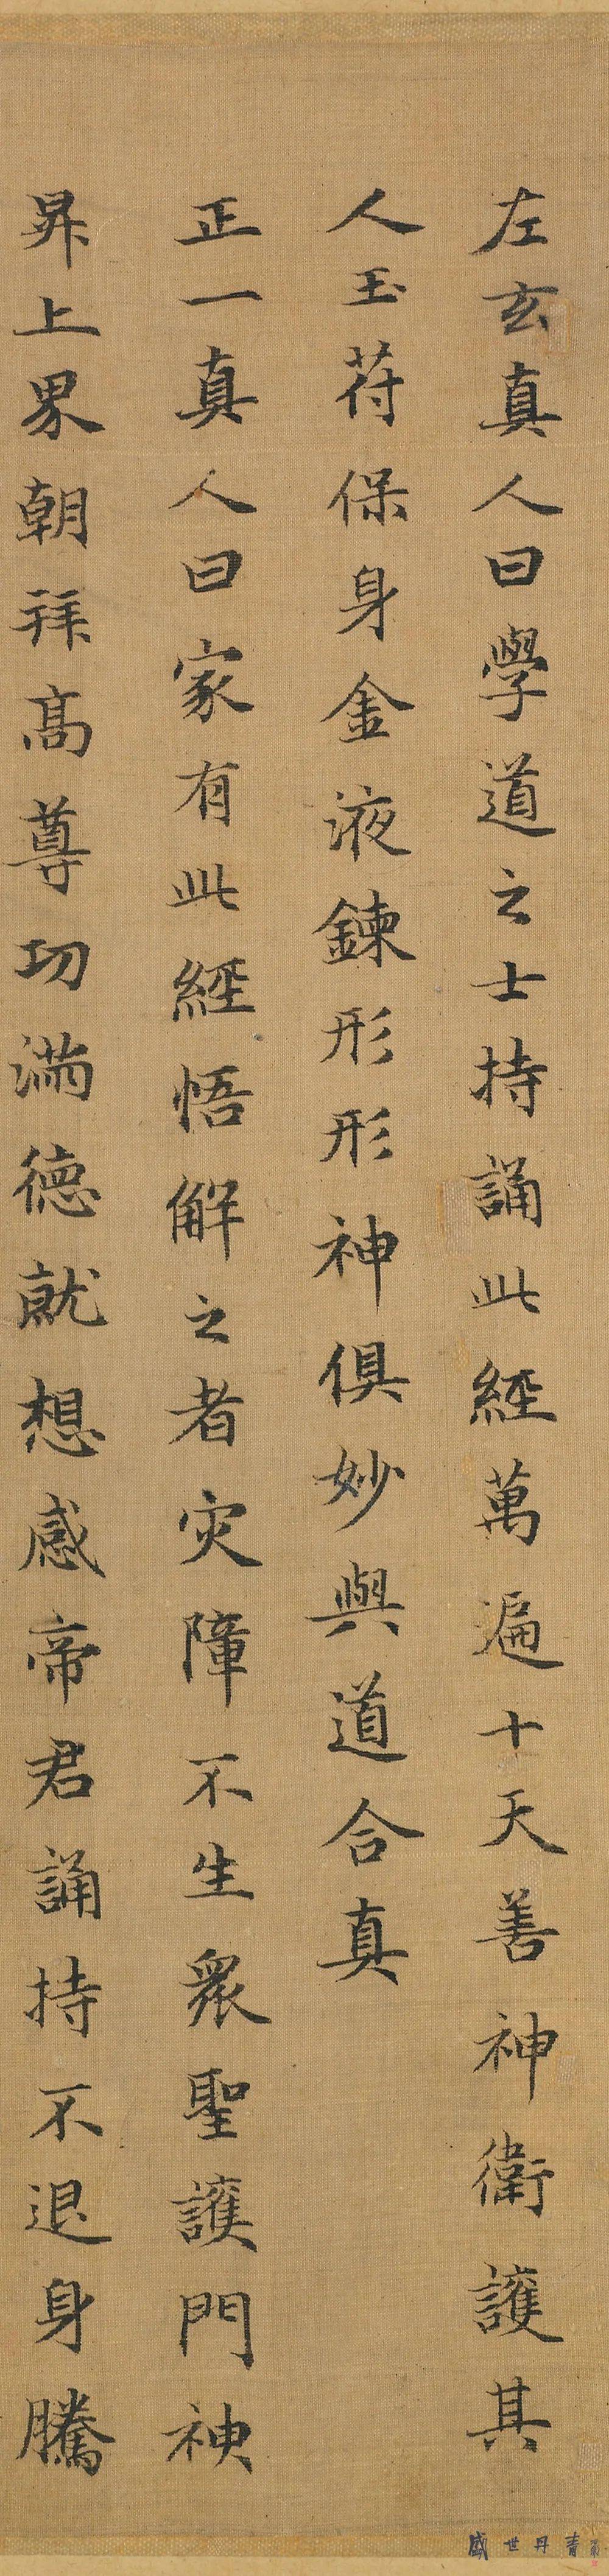 左玄真人曰學道之士持誦此經萬遍十天善神衛護其
人玉符保身金液鍊形形神俱妙與道合真
正一真人曰家有此經悟解之者灾障不生衆聖護門神
昇上界朝拜高尊功滿德就想感帝君誦持不退身騰
盛世丹青